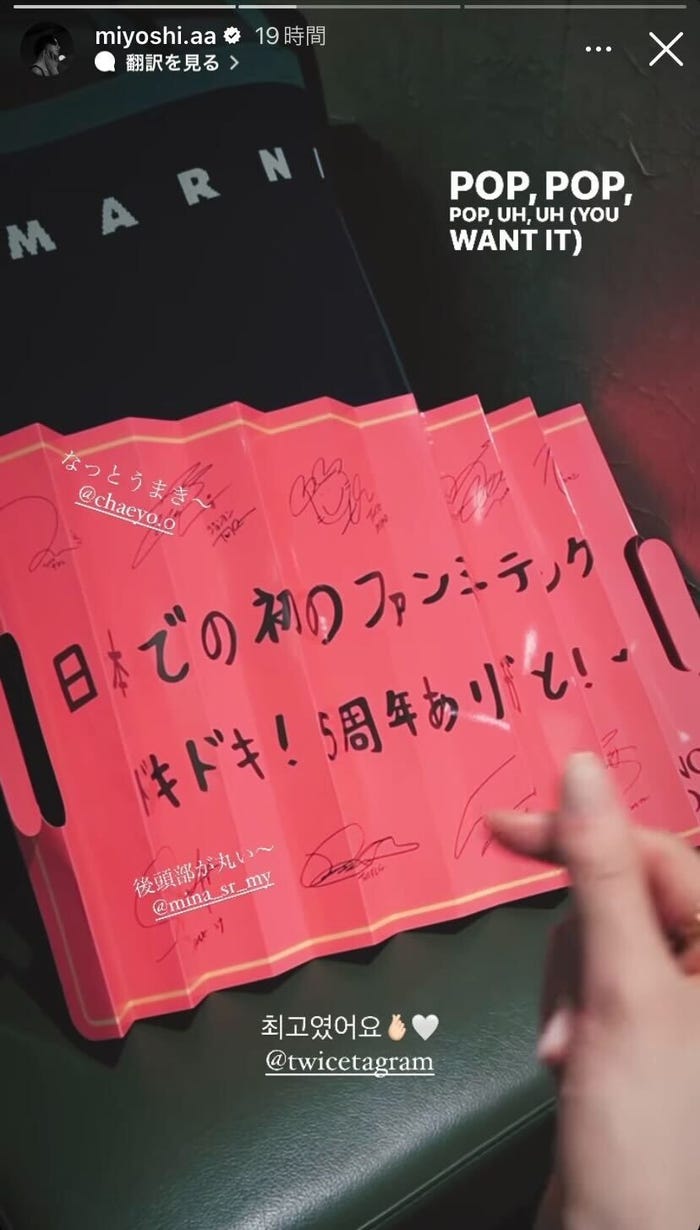 miyoshi.aa 19時間
翻訳を見る
MARNI
POP, POP,
POP, UH, UH (YOU
WANT IT)
なっとうまき〜
@chaeyo.o
日本での初のファンミーティング
ドキドキ！5周年ありがと！
後頭部が丸い〜
@mina_sr_my
최고였어요🫰🏻🤍
@twicetagram